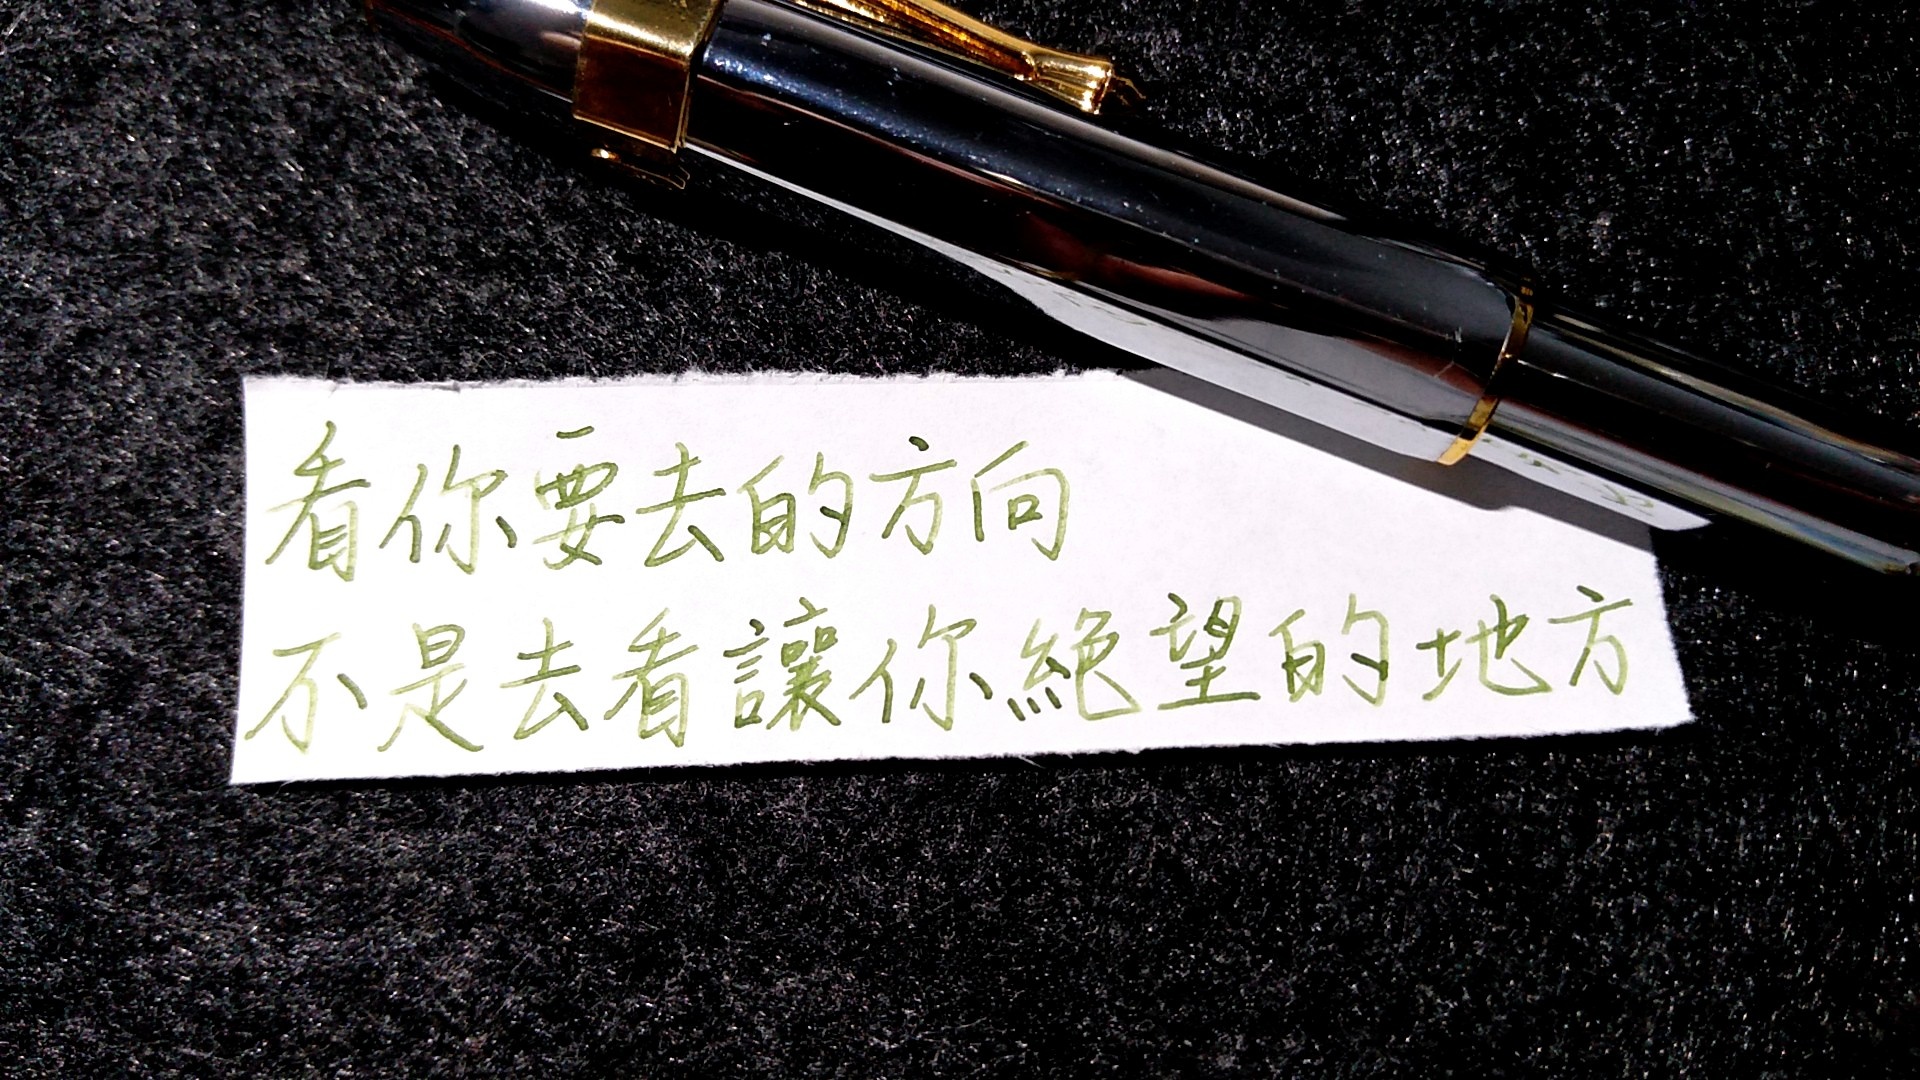 看你要去的方向
不是去看讓你絕望的地方